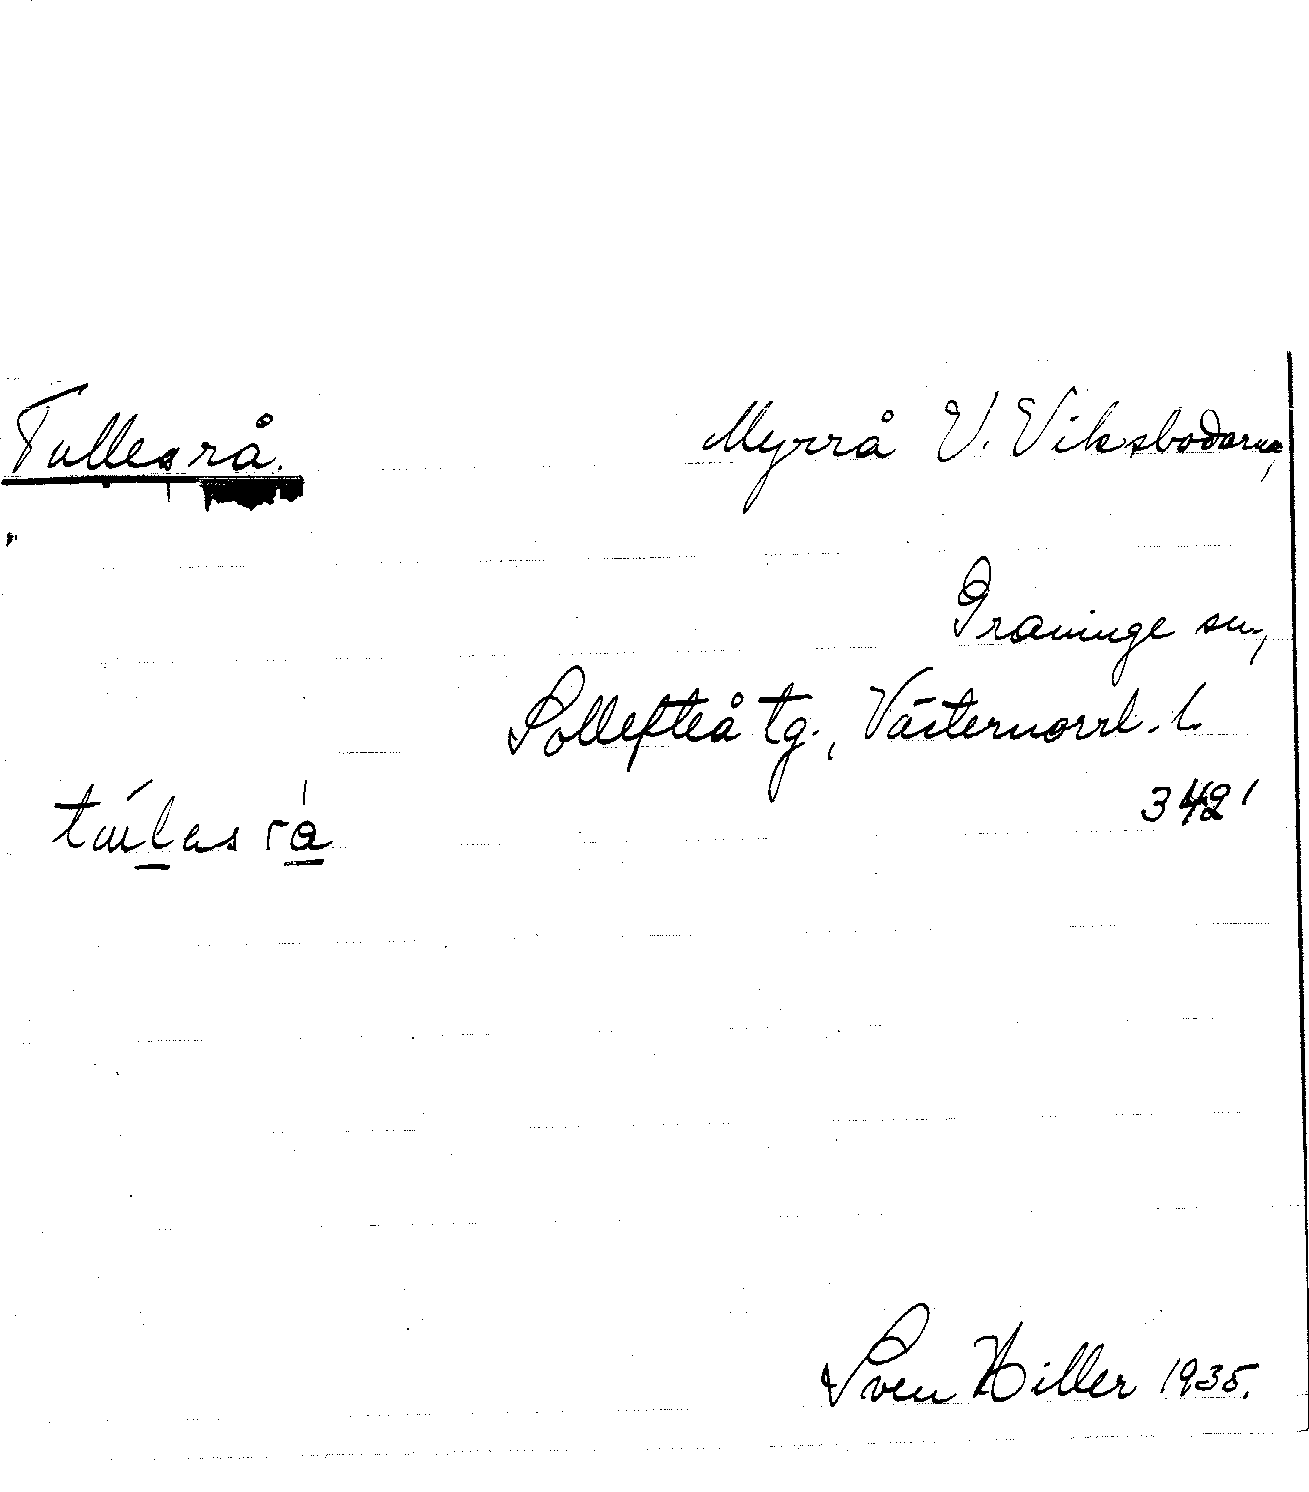 Tullesrå.
Myrrå V. Viksbodarna,
Graninge sn,
Sollefteå tg., Västernorrl. l.
3421
Sven Hiller 1935.